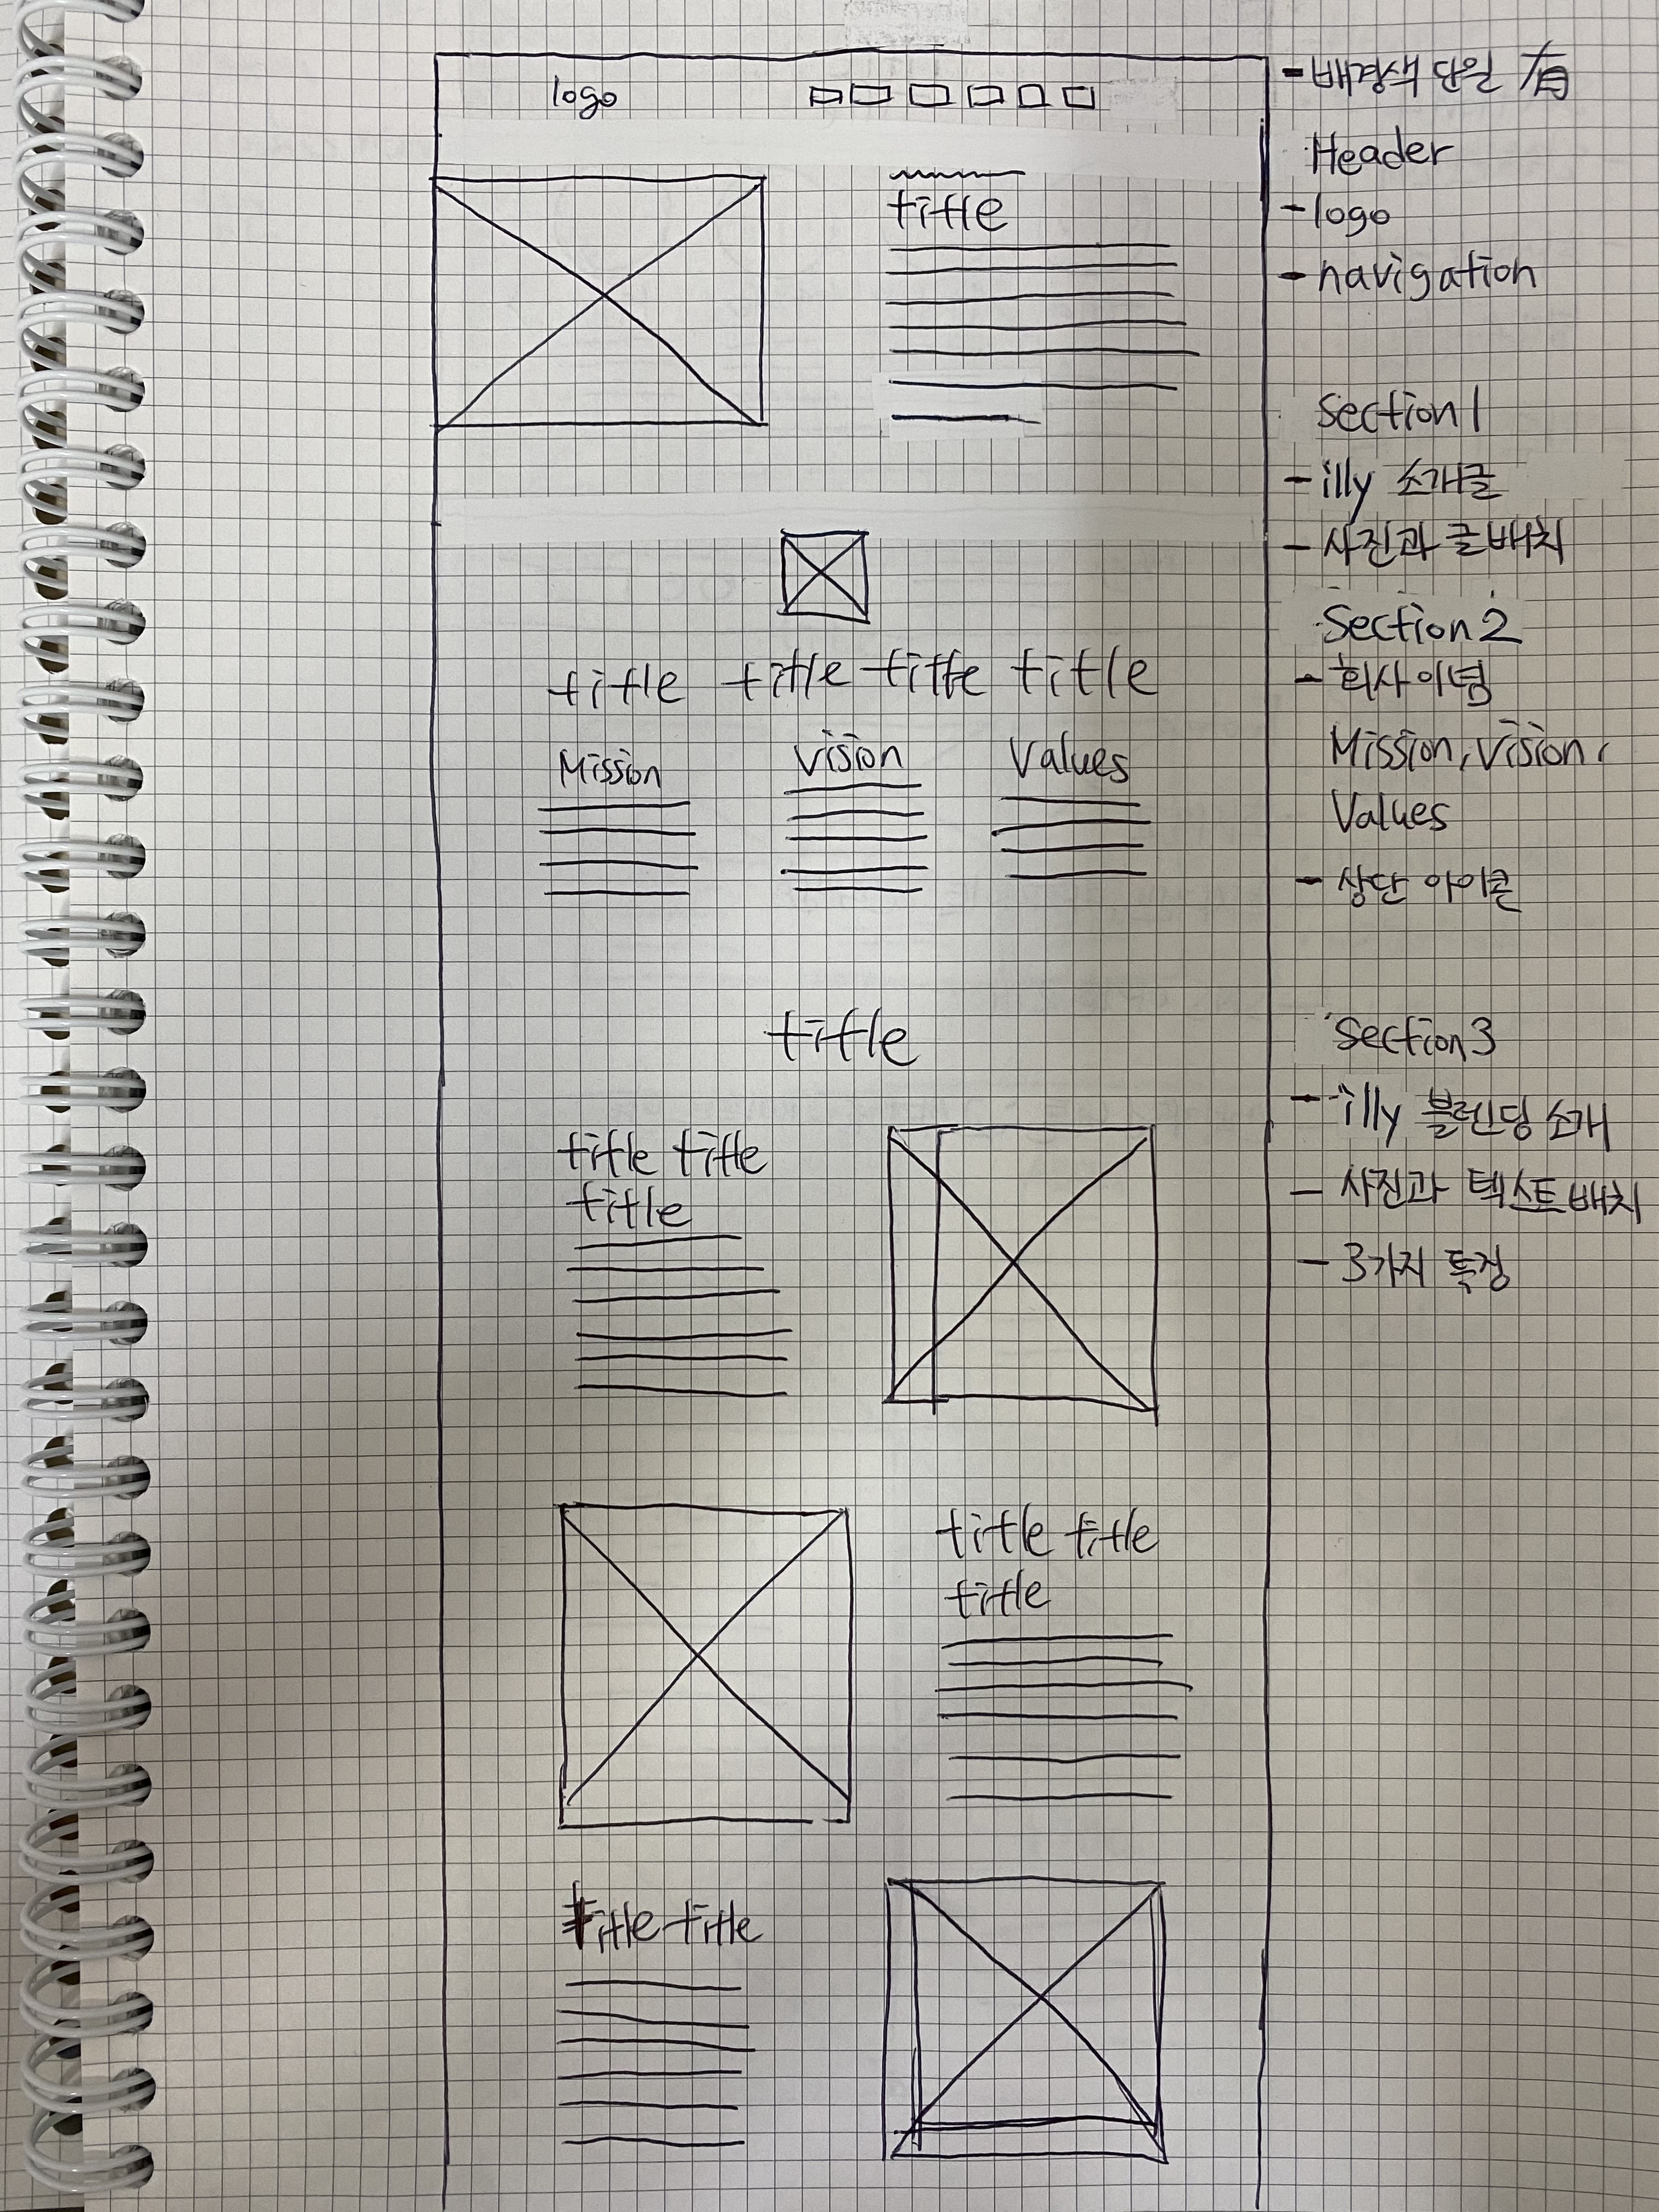 logo
title
title title title title
Mission
Vision
Values
title
title title
title
title title
title
title title
- 배경색 단일 有
Header
- logo
- navigation
Section 1
- illy 소개글
- 사진과 글 배치
Section 2
- 회사 이념
Mission, Vision,
Values
- 상단 아이콘
Section 3
- illy 블렌딩 소개
- 사진과 텍스트 배치
- 3가지 특징